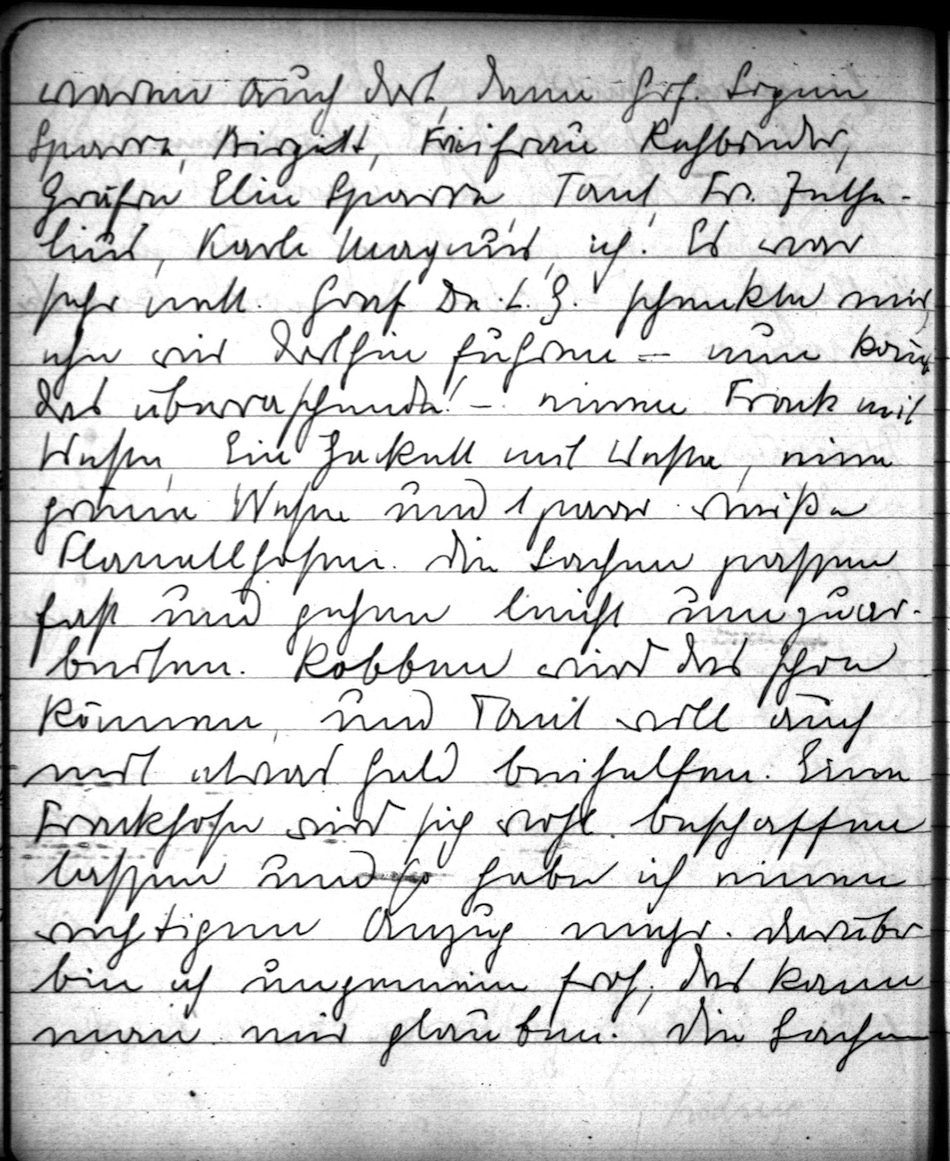 waren auch dort, dann Grf.
Sparre, Birgitt, Freifrau Rehbinder,
Gräfin Elin Sparre, Tant, Fr.
Karl Magnus, ich. Es war
sehr nett. Graf De. L. G. schenkte mir,
ehe wir dorthin fuhren – nun kommt
das überraschende! – einen Frack mit
Weste, Ein Jackett mit Weste, eine
grüne Weste und 1 paar weiße
Flanellhosen. Die Sachen passen
fast und gehen leicht umzuar-
beiten. Robben wird das schon
können, und Tant will auch
mit etwas Geld beihelfen. Eine
Frackhose wird sich wohl beschaffen
lassen und so habe ich einen
richtigen Anzug mehr. Darüber
bin ich ungemein froh, das kann
man mir glauben. Die Sachen